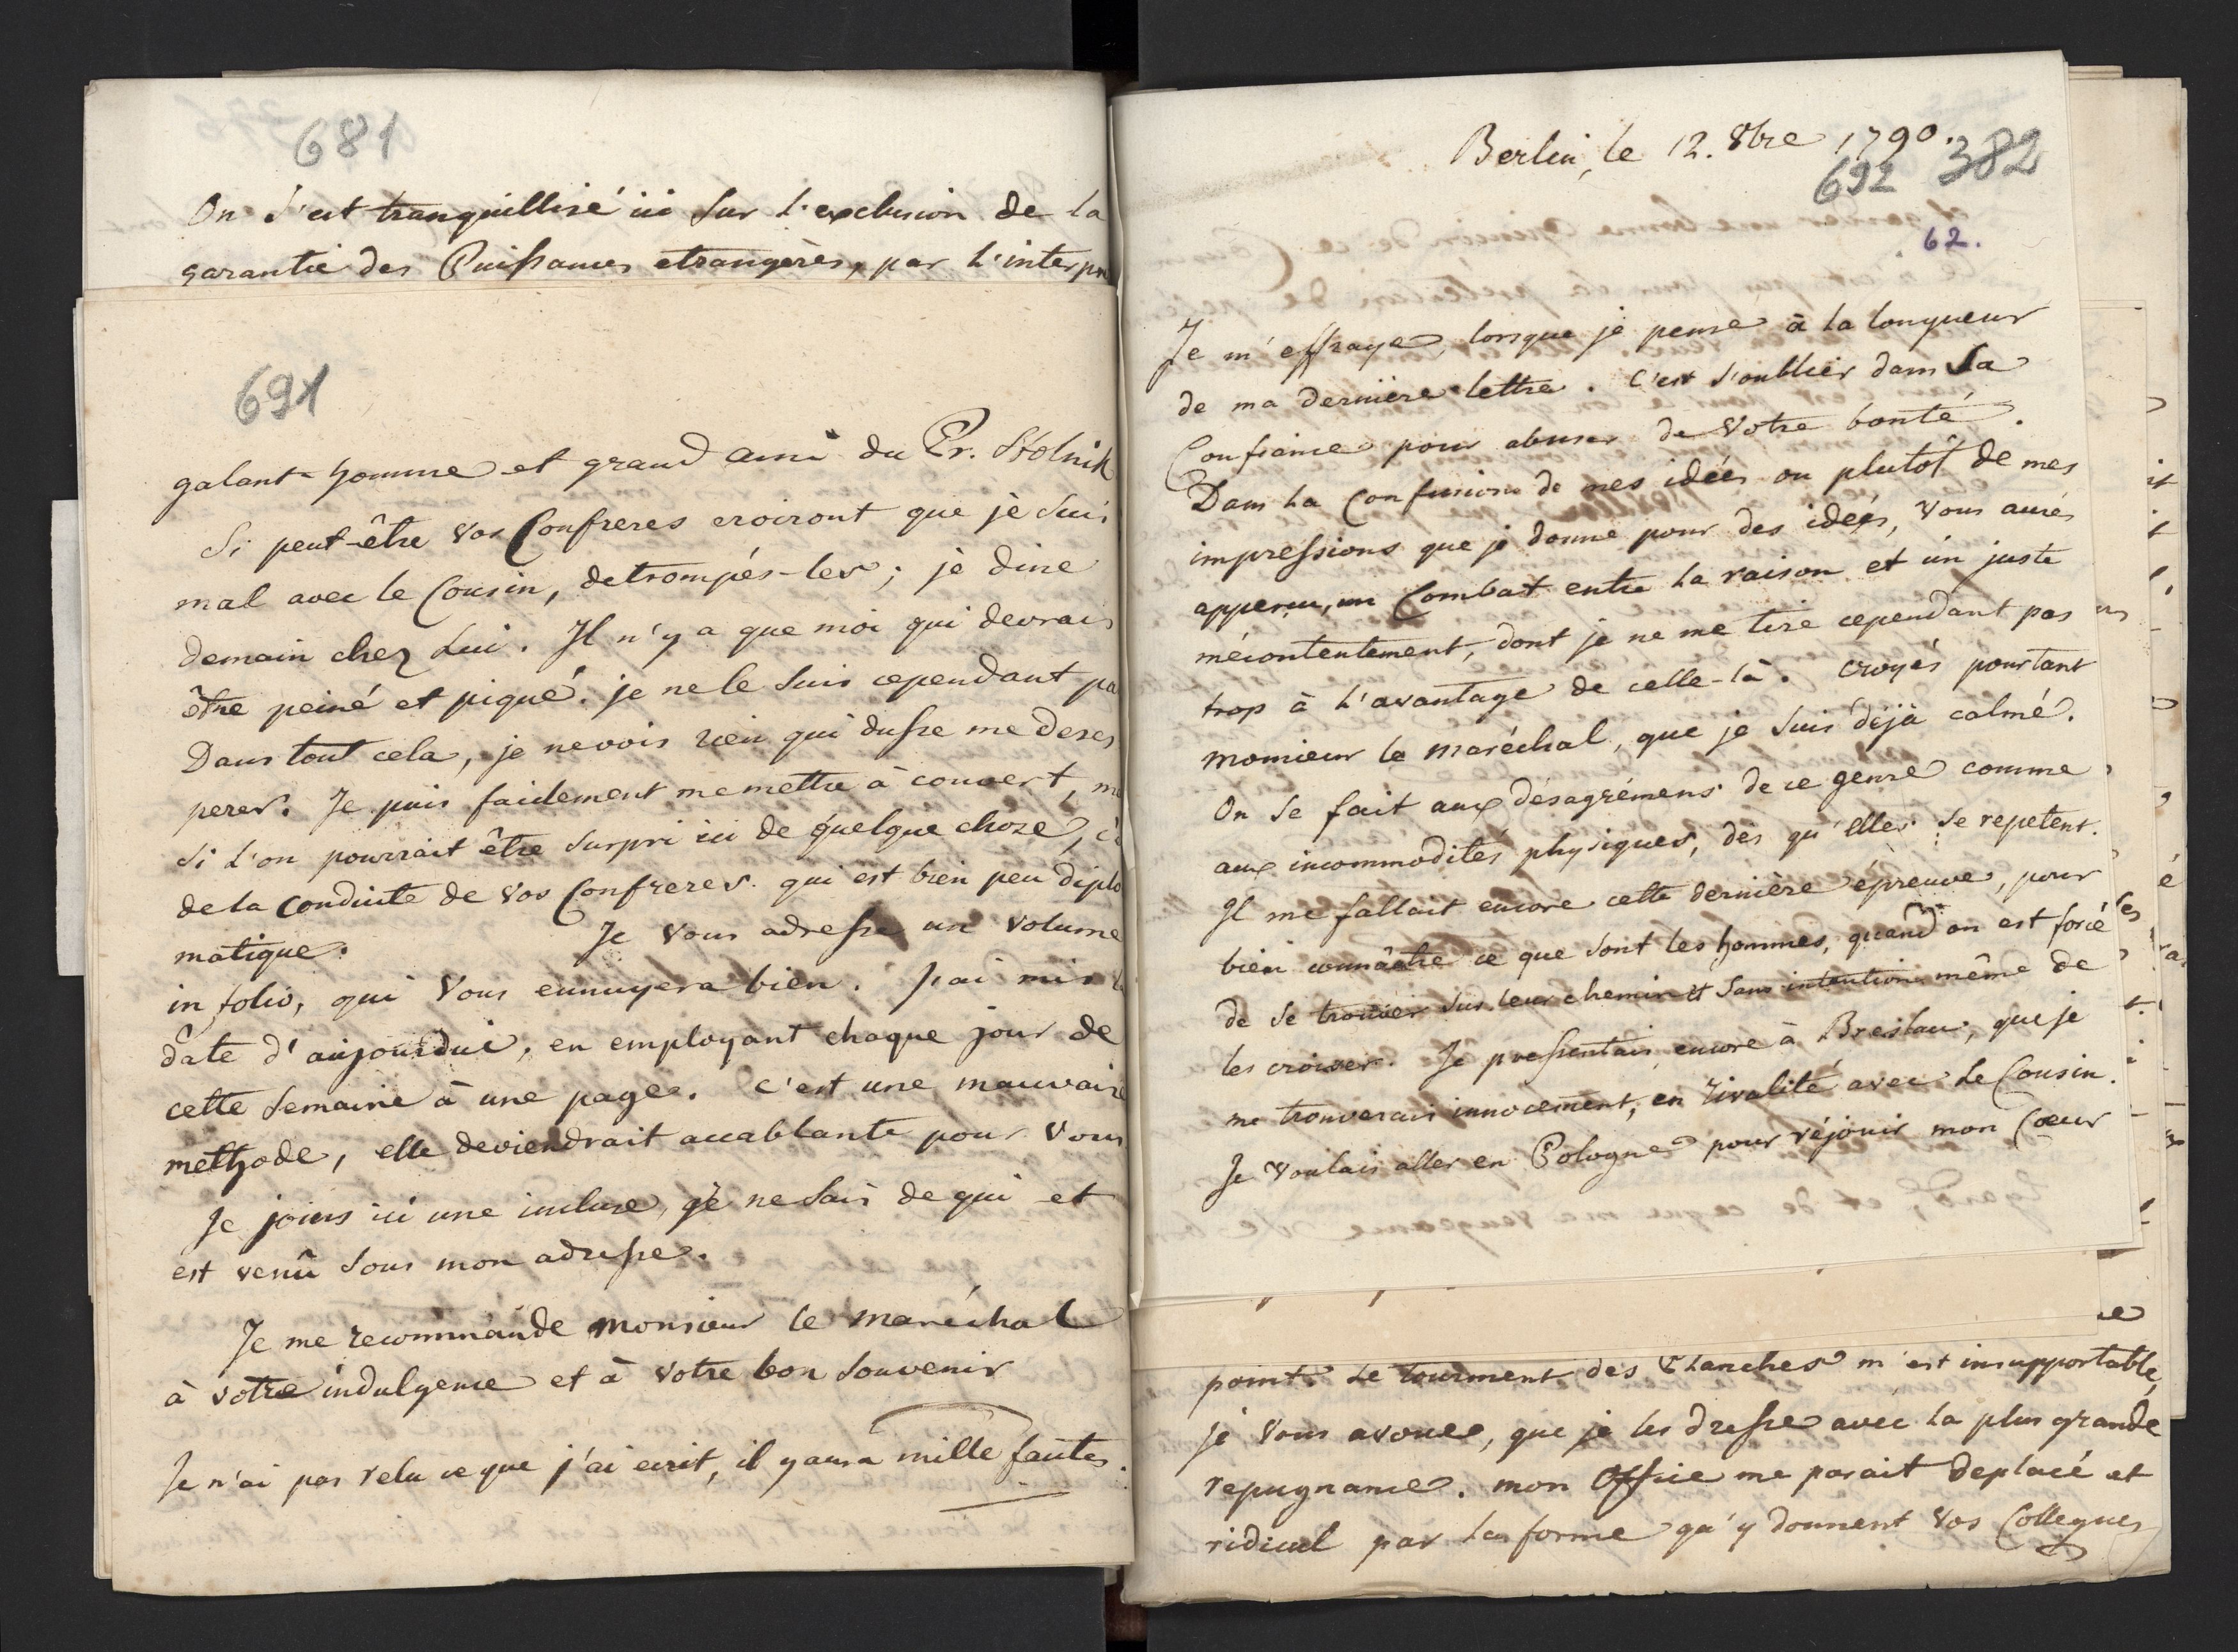 681
On s'est tranquillisé ici sur l'exclusion de la
garantie des Puissances etrangères, par l'interpr
691
galant-homme et grand ami du Pr. Stolnik
Si peut-être vos Confreres croiront que je suis
mal avec le Cousin, detrompés-les; je dine
demain chez Lui. Il n'y a que moi qui devrais
être peiné et piqué. je ne le suis cependant pa
Dans tout cela, je ne vois rien qui dusse me deses
perer. Je puis facilement me mettre à couvert, m
Si l'on pourrait être surpri ici de quelque choze, c'
de la conduite de vos Confreres. qui est bien peu diplo
matique. Je vous adresse un volume
in folio, qui vous ennuyera bien. j'ai mis l
date d'aujourdui, en employant chaque jour de
cette semaine à une page. C'est une mauvaise
methode, elle deviendrait accablante pour vous
Je joins ici une incluse, je ne sais de qui et
est venû sous mon adresse.
Je me recommande Monsieur le maréchal
à votre indulgence et à votre bon souvenir
Je n'ai pas relu ce que j'ai ecrit, il y aura mille fautes.
Berlin, le 12. 8bre 1790.
692 382
62.
Je m'effraye, lorsque je pense à la longueur
de ma derniere lettre. C'est s'oublier dans sa
Confiance pour abuser de votre bonté.
Dans la Confusion de mes idées ou plutôt de mes
impressions que je donne pour des idées, vous aurés
apperçu, un Combat entre la raison et un juste
mécontentement, dont je ne me tire cependant pas
trop à l'avantage de celle-là. croyés pourtant
monsieur le maréchal, que je suis déjà calmé.
On se fait aux désagrémens de ce genre comme
aux incommodités physiques, dès qu'elles se repetent.
Il me fallait encore cette dernière épreuve, pour
bien connaître ce que sont les hommes, quand on est forcé
de se trouver sur leur chemin et sans intention même de
les croiser. Je pressentais encore à Breslau, que je
me trouverais innocement, en rivalité avec le Cousin.
Je voulais aller en Pologne pour réjouir mon Cœur
point. Le tourment des Blanches m'est insupportable,
je vous avoue, que je les dresse avec la plus grande
repugnance. mon Office me parait deplacé et
ridicul par la forme qu'y donnent vos Collegues